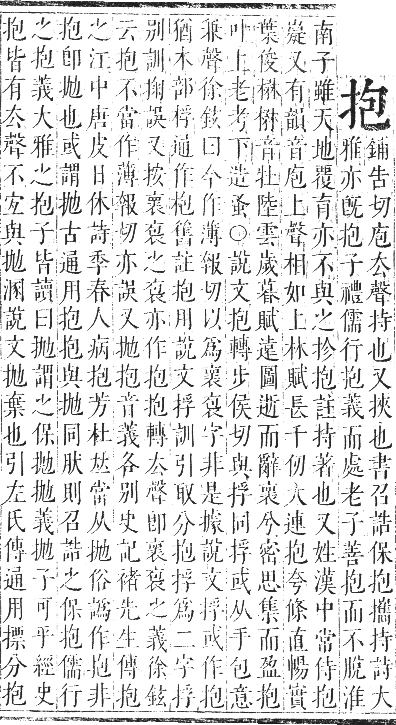 抱
鋪吿切庖厺聲持也又挾也書召誥保抱攜持詩大
雅亦旣抱子禮儒行抱義而處老子善抱而不脫淮
南子雖天地覆育亦不與之抮抱註持著也又姓漢中常侍抱
嶷又有韻音庖上聲相如上林賦長千仞大連抱夸條直暢實
葉俊楙楙音壯陸雲歲暮賦遠圖逝而辭褱兮密思集而盈抱
叶上老考下造蚤○說文抱轉步侯切與捊同捊或从手包意
兼聲徐鉉曰今作薄報切以爲褱袌字非是據說文捊或作抱
猶木部桴通作枹舊註抱用說文捊訓引取分抱捊爲二字捊
別訓掬誤又按褱袌之袌亦作抱抱轉厺聲卽褱袌之義徐鉉
云抱不當作薄報切亦誤又抛抱音義各別史記褚先生傳抱
之江中唐皮日休詩季春人病抱芳杜𠀤當从抛俗譌作抱非
抱卽抛也或謂抛古通用抱抱與抛同肰則召誥之保抱儒行
之抱義大雅之抱子皆讀曰抛謂之保抛抛義抛子可乎經史
抱皆有厺聲不宐與抛溷說文抛棄也引左氏傳通用摽分抱